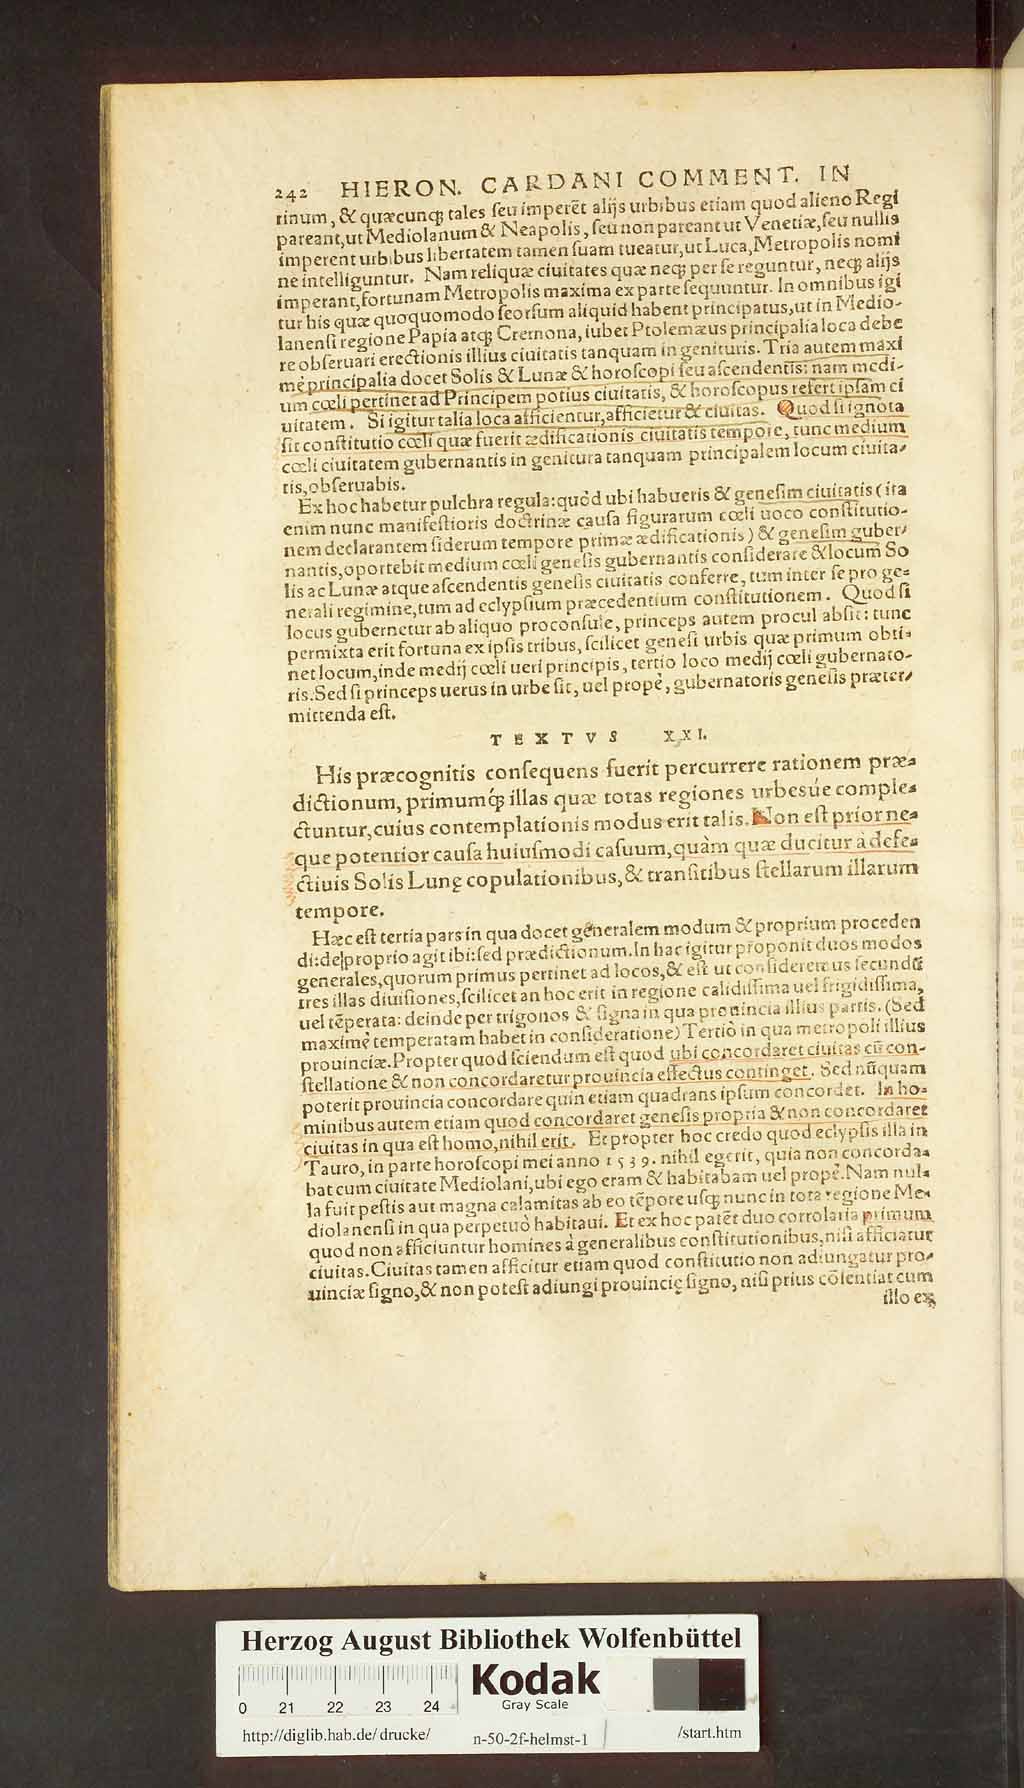 242 HIERON. CARDANI COMMENT. IN
rinum, & quæcunq; tales seu imperēt alijs urbibus etiam quod alieno Regi
pareant, ut Mediolanum & Neapolis, seu non pareant ut Venetiæ, seu nullis
imperent urbibus libertatem tamen suam tueatur, ut Luca, Metropolis nomi
ne intelliguntur. Nam reliquæ ciuitates quæ neq; per se reguntur, neq; alijs
imperant, fortunam Metropolis maxima ex parte sequuntur. In omnibus igi
tur his quæ quoquomodo seorsum aliquid habent principatus, ut in Medio-
lanensi regione Papia atq; Cremona, iubet Ptolemæus principalia loca debe
re obseruari erectionis illius ciuitatis tanquam in genituris. Tria autem maxi
mè principalia docet Solis & Lunæ & horoscopi seu ascendentis: nam medi-
um cœli pertinet ad Principem potius ciuitatis, & horoscopus refert ipsam ci
uitatem. Si igitur talia loca afficientur, afficietur & ciuitas. Quod si ignota
sit constitutio cœli quæ fuerit ædificationis ciuitatis tempore, tunc medium
cœli ciuitatem gubernantis in genitura tanquam principalem locum ciuita-
tis, obseruabis.
Ex hoc habetur pulchra regula: quòd ubi habueris & genesim ciuitatis (ita
enim nunc manifestioris doctrinæ causa figurarum cœli uoco constitutio-
nem declarantem siderum tempore primæ ædificationis) & genesim guber-
nantis, oportebit medium cœli genesis gubernantis considerare & locum So
lis ac Lunæ atque ascendentis genesis ciuitatis conferre, tum inter se pro ge-
nerali regimine, tum ad eclypsium præcedentium constitutionem. Quod si
locus gubernetur ab aliquo proconsule, princeps autem procul absit: tunc
permixta erit fortuna ex ipsis tribus, scilicet genesi urbis quæ primum obti-
net locum, inde medij cœli ueri principis, tertio loco medij cœli gubernato-
ris. Sed si princeps uerus in urbe sit, uel propè, gubernatoris genesis præter-
mittenda est.
TEXTVS XXI.
His præcognitis consequens fuerit percurrere rationem præ-
dictionum, primumq́; illas quæ totas regiones urbesúe comple-
ctuntur, cuius contemplationis modus erit talis. Non est prior ne-
que potentior causa huiusmodi casuum, quàm quæ ducitur à defe-
ctiuis Solis Lunę copulationibus, & transitibus stellarum illarum
tempore.
Hæc est tertia pars in qua docet generalem modum & proprium proceden
di: de proprio agit ibi: sed prædictionum. In hac igitur proponit duos modos
generales, quorum primus pertinet ad locos, & est ut consideremus secundū
tres illas diuisiones, scilicet an hoc erit in regione calidissima uel frigidissima,
uel tēperata: deinde per trigonos & signa in qua prouincia illius partis. (Sed
maximè temperatam habet in consideratione) Tertiò in qua metropoli illius
prouinciæ. Propter quod sciendum est quod ubi concordaret ciuitas cū con-
stellatione & non concordaretur prouincia effectus continget. Sed nūquam
poterit prouincia concordare quin etiam quadrans ipsum concordet. In ho-
minibus autem etiam quod concordaret genesis propria & non concordaret
ciuitas in qua est homo, nihil erit. Et propter hoc credo quod eclypsis illa in
Tauro, in parte horoscopi mei anno 1539. nihil egerit, quia non concorda-
bat cum ciuitate Mediolani, ubi ego eram & habitabam uel propè. Nam nul-
la fuit pestis aut magna calamitas ab eo tēpore usq; nunc in tota regione Me-
diolanensi in qua perpetuò habitaui. Et ex hoc patēt duo corrolaria primum
quod non afficiuntur homines à generalibus constitutionibus, nisi afficiatur
ciuitas. Ciuitas tamen afficitur etiam quod constitutio non adiungatur pro-
uinciæ signo, & non potest adiungi prouincię signo, nisi prius cōsentiat cum
illo ex
Herzog August Bibliothek Wolfenbüttel
Kodak
Gray Scale
0 21 22 23 24
http://diglib.hab.de/drucke/ n-50-2f-helmst-1 /start.htm